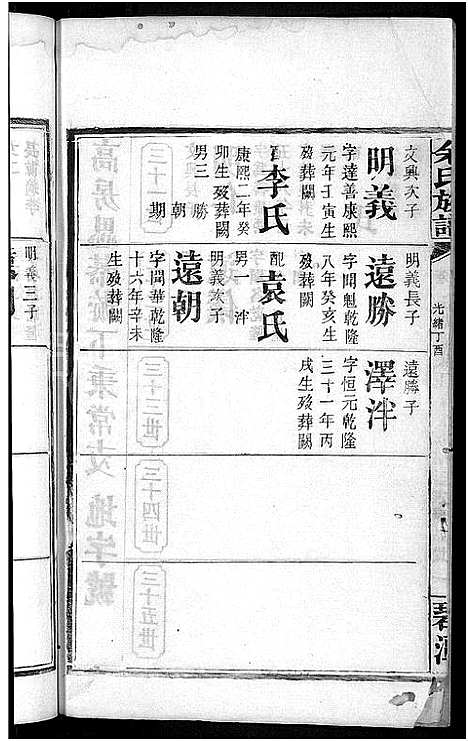 余氏族譜
光緒丁酉
文興次子
明義
字達善康熙
元年壬寅生
歿葬闕
配李氏
康熙二年癸
卯生歿葬闕
男三 勝
朝
期
明義長子
遠勝
字聞魁乾隆
八年癸亥生
歿葬闕
配袁氏
男一 泮
明義次子
遠朝
字聞華乾隆
十六年辛未
生歿葬闕
遠勝子
澤泮
字恒元乾隆
三十一年丙
戌生歿葬闕
明義三子
三十二世
三十四世
三十五世